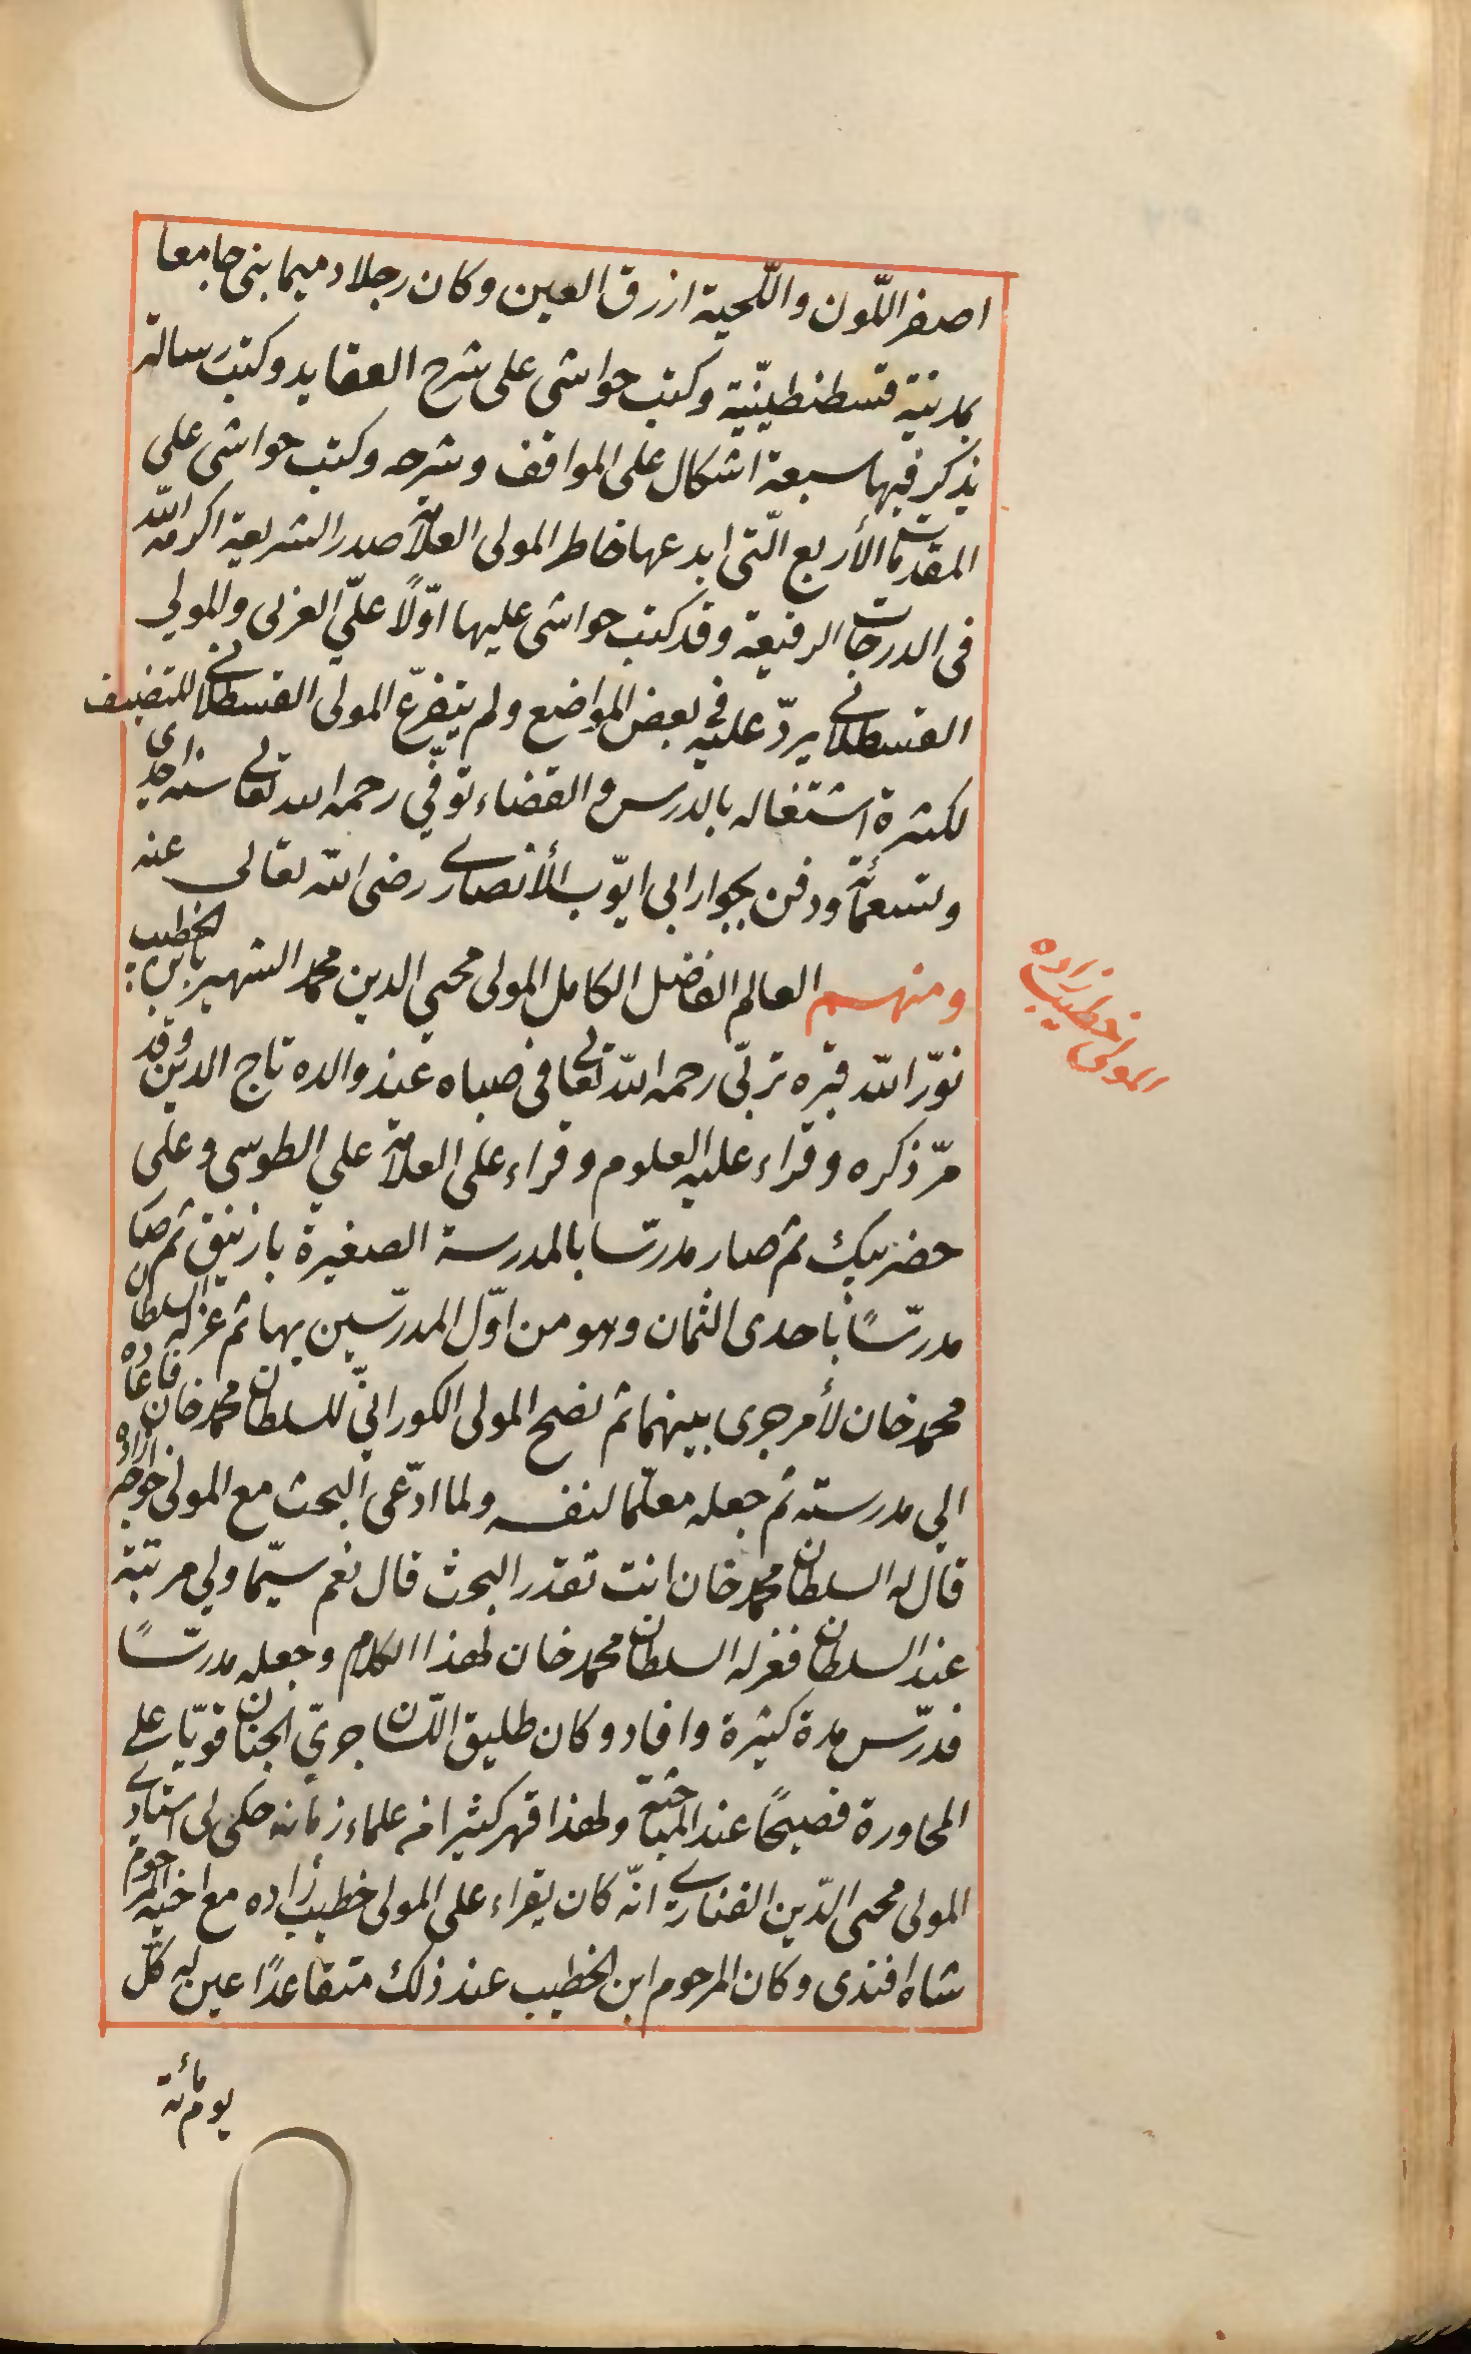 اصفر اللّون واللّحية ازرق العين وكان رجلا دميما بنى جامعا
بمدينة قسطنطينيّة وكتب حواشى على شرح العقايد وكتب رسالة
يذكر فيها سبعة اشكال على المواقف وشرحه وكتب حواشى على
المقدمات الأربع الّتى ابدعها خاطر المولى العلامة صدر الشريعة اكرمه اللّه
فى الدرجات الرفيعة وقد كتب حواشى عليها اوّلاً علىّ العربى وللمولى
القسطلانى يردّ عليه فى بعض المواضع ولم يتفرّغ المولى القسطلانى للتصنيف
لكثرة اشتغاله بالدرس والقضاء توفّى رحمه الله تعالى سنة احدى
وتسعمائة ودفن بجوار ابى ايّوب الأنصارى رضى اللّه تعالى عنه
ومنهم العالم الفاضل الكامل المولى محيى الدين محمد الشهير بابن الخطيب
نوّر اللّه قبره تربّى رحمه اللّه تعالى فى صباه عند والده تاج الدين وقد
مرّ ذكره وقراء عليه العلوم وقراء على العلامة على الطوسى وعلى
حضربيك ثم صار مدرّسا بالمدرسة الصغيرة بازنيق ثم صار
مدرّسًا باحدى الثمان وهو من اوّل المدرّسين بها ثم عزله السلطان
محمد خان لأمر جرى بينهما ثم نصح المولى الكورانىّ للسلطان محمد خان فاعاده
الى مدرسته ثم جعله معلّما لنفسه ولما ادّعى البحث مع المولى خوجه زاده
قال له السلطان محمد خان انت تقدر البحث قال نعم سيّما ولى مرتبة
عند السلطان فعزله السلطان محمد خان لهذا الكلام وجعله مدرّسًا
فدرّس مدة كثيرة وافاد وكان طليق اللّسان جرىّ الجنان قويّا على
المحاورة فصيحًا عند المباحثة ولهذا قهر كثيرا من علماء زمانه حكى لى استادى
المولى محيى الدّين الفنارى انّه كان يقراء على المولى خطيب زاده مع اخيه المرحوم
شاه افندى وكان المرحوم ابن الخطيب عند ذلك متقاعدًا عين له كلّ
يوم مائة
المولى خطيب زاده